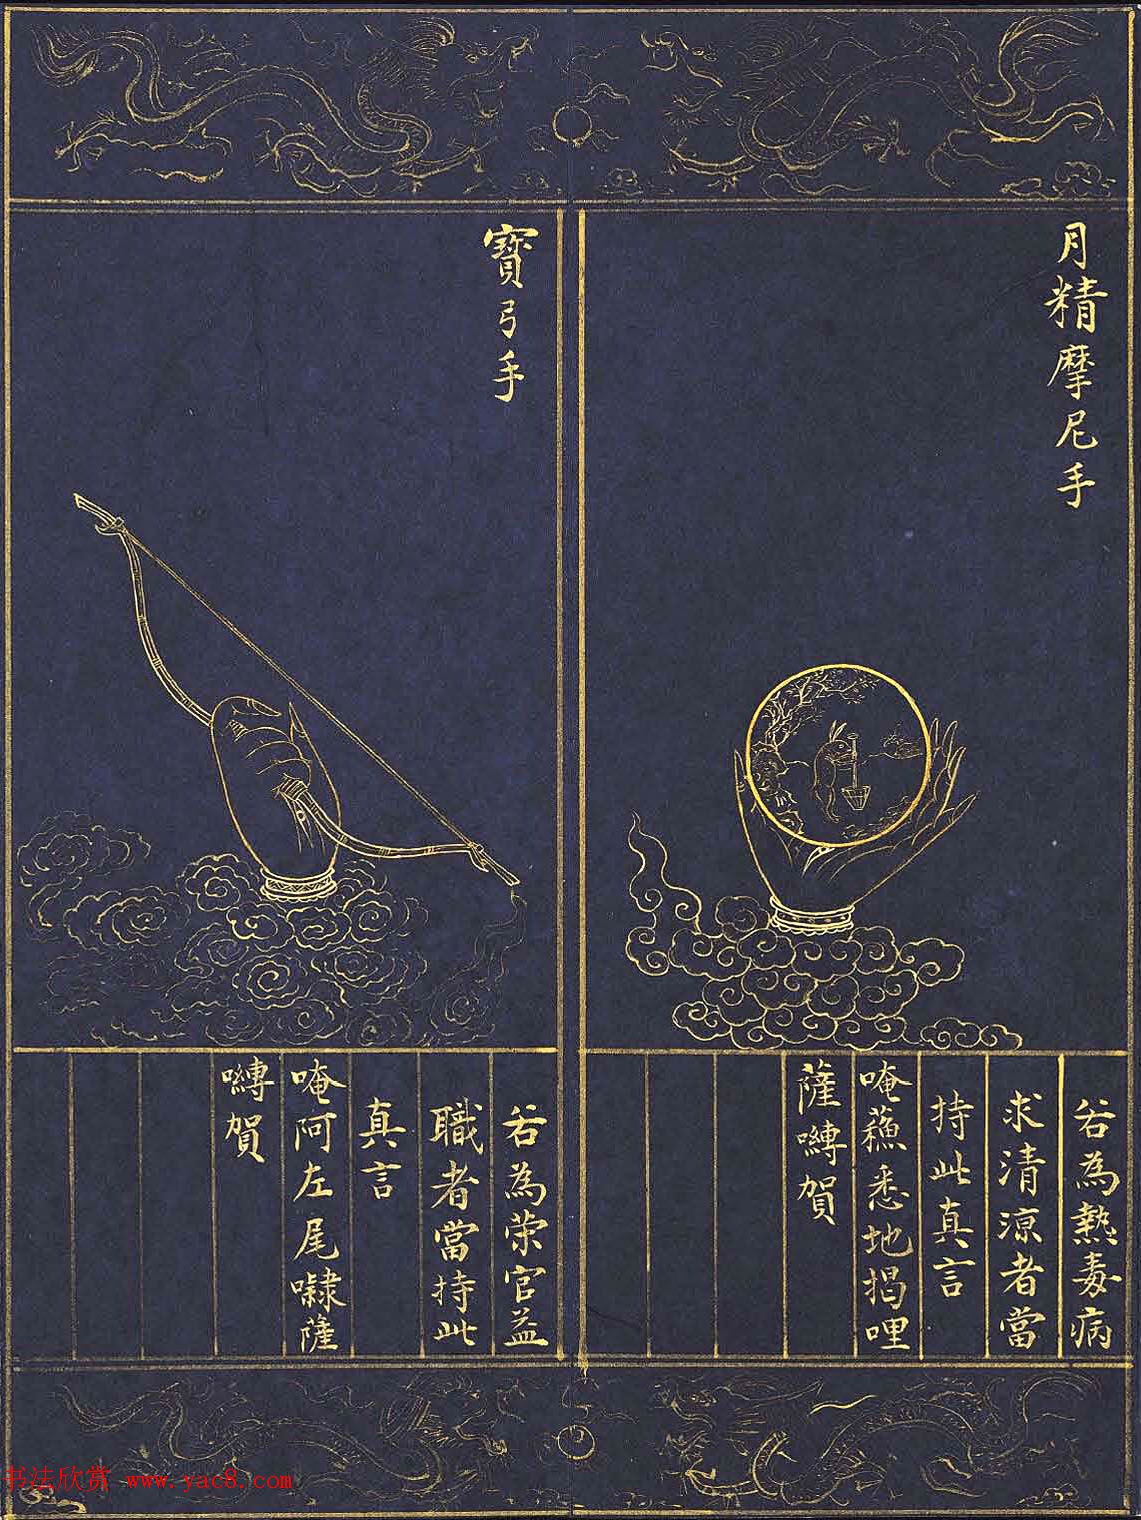 月精摩尼手
若為熱毒病
求清涼者當
持此真言
唵蘓悉地揭哩
薩嚩賀
寶弓手
若為荣官益
職者當持此
真言
唵阿左尾㘑薩
嚩賀
书法欣赏 www.yac8.com